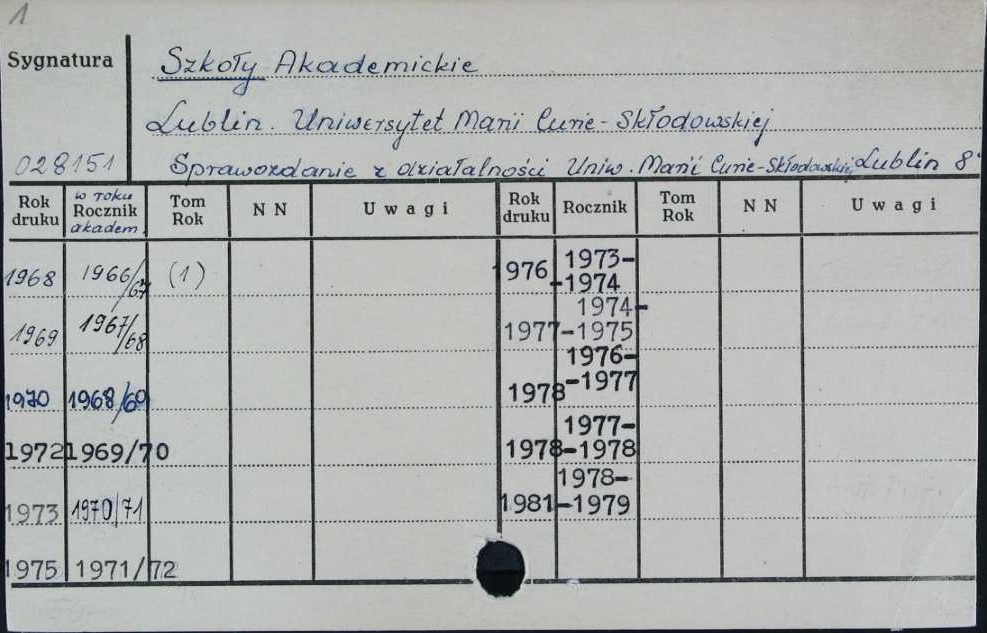 1
Sygnatura
Szkoły Akademickie
Lublin. Uniwersytet Marii Curie-Skłodowskiej
028151 Sprawozdanie z działalności Uniw. Marii Curie-Skłodowskiej Lublin 8°
Rok druku | w roku Rocznik akadem. | Tom Rok | NN | Uwagi | Rok druku | Rocznik | Tom Rok | NN | Uwagi
1968 1966/67 (1)
1969 1967/68
1970 1968/69
1972 1969/70
1973 1970/71
1975 1971/72
1976 1973-
-1974
1974-
1977 -1975
1976-
1978 -1977
1977-
1978 -1978
1978-
1981 -1979